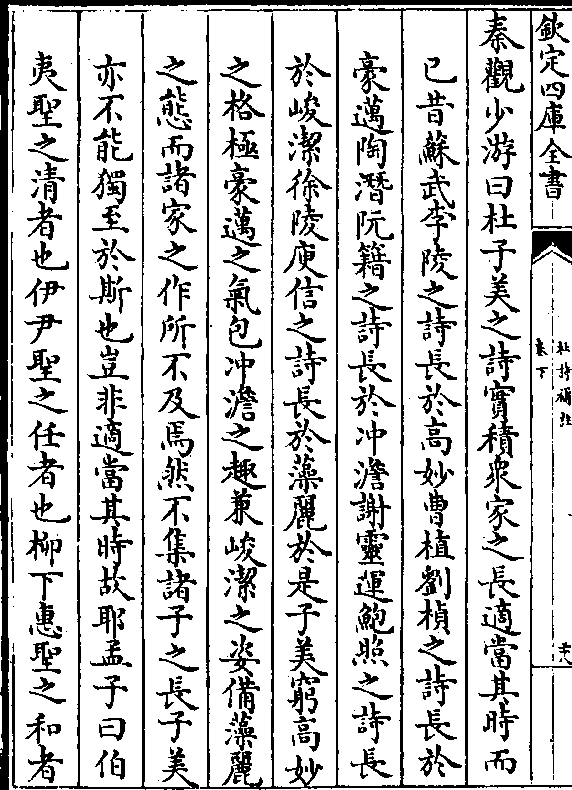 欽定四庫全書
卷下
秦觀少游曰杜子美之詩實積衆家之長適當其時而
已昔蘇武李陵之詩長於高妙曹植劉楨之詩長於
豪邁陶潛阮籍之詩長於冲澹謝靈運鮑照之詩長
於峻潔徐陵庾信之詩長於藻麗於是子美窮高妙
之格極豪邁之氣包冲澹之趣兼峻潔之姿備藻麗
之態而諸家之作所不及焉然不集諸子之長子美
亦不能獨至於斯也豈非適當其時故耶孟子曰伯
夷聖之清者也伊尹聖之任者也柳下惠聖之和者